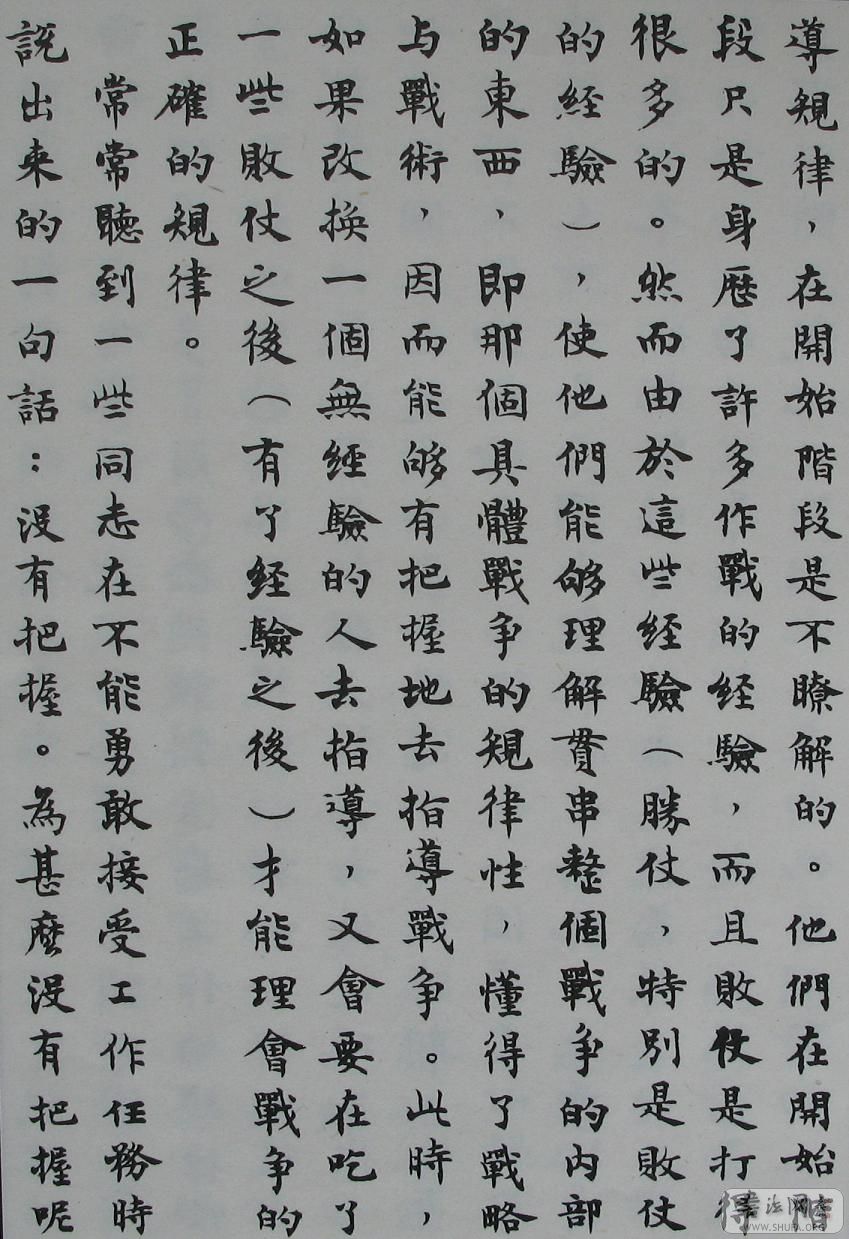 導規律，在開始階段是不瞭解的。他們在開始
段只是身歷了許多作戰的經驗，而且敗仗是打
很多的。然而由於這些經驗（勝仗，特別是敗仗
的經驗），使他們能够理解貫串整個戰争的内部
的東西，即那個具體戰争的規律性，懂得了戰略
与戰術，因而能够有把握地去指導戰争。此時，
如果改換一個無經驗的人去指導，又會要在吃了
一些敗仗之後（有了經驗之後）才能理會戰争的
正確的規律。
常常聽到一些同志在不能勇敢接受工作任務時
説出来的一句話：没有把握。為甚麽没有把握呢
WWW.SHUFA.ORG